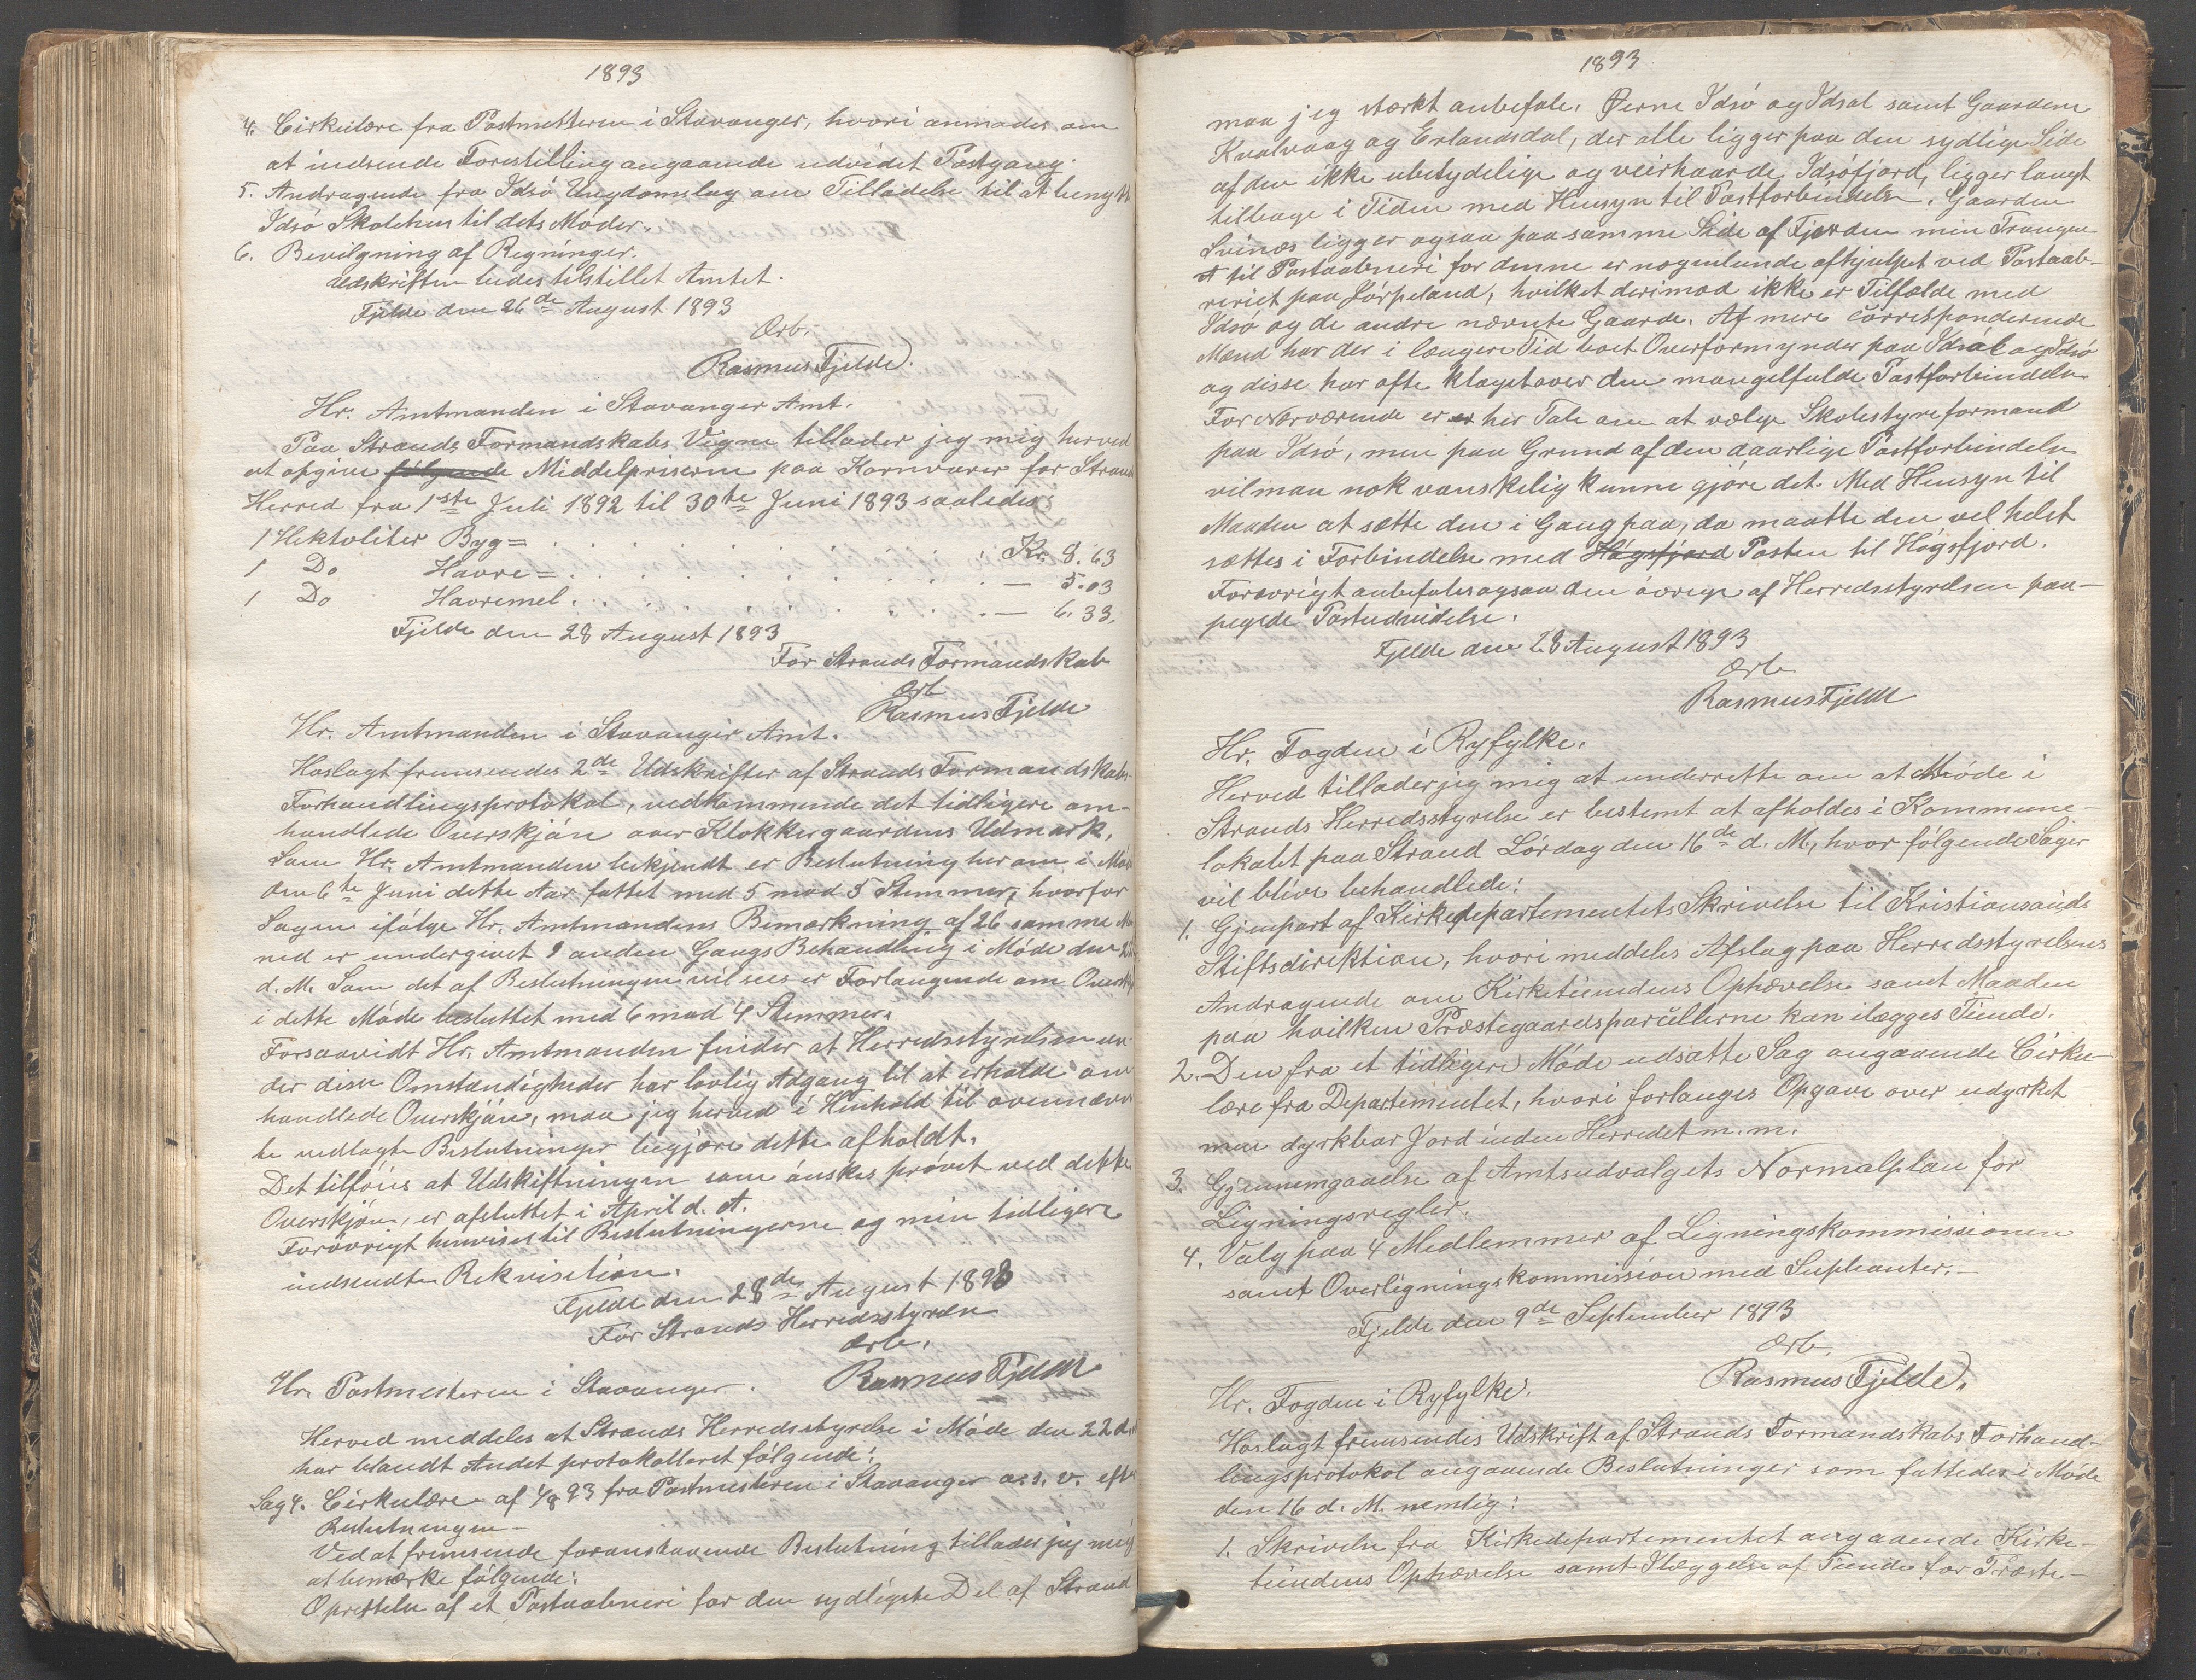 1893
4. Cirkulære fra Postmesteren i Stavanger, hvori anmodes om
at indsende Forestilling angaaende udvidet Postgang.
5. Andragende fra Idsø Ungdomslag om Tilladelse til at benytte
Idsø Skolehus til dets Møder.
6. Bevilgning af Regninger.
Udskriften bedes tilstillet Amtet.
Fjelde den 26de August 1893
Ærb.
Rasmus Fjelde.
Hr. Amtmanden i Stavanger Amt.
Paa Strands Formandskabs Vegne tillader jeg mig herved
at opgive følgende Middelpriserne paa Kornvarer for Strand
Herred fra 1ste Juli 1892 til 30te Juni 1893 saaledes:
1 Hektoliter Byg = . . . . . . . . Kr. 8.63
1 Do Havre = . . . . . . . . — 5.03
1 Do Havremel . . . . . . . . — 6.33.
Fjelde den 28 August 1893
For Strands Formandskab
Ærb
Rasmus Fjelde
Hr. Amtmanden i Stavanger Amt.
Hoslagt fremsendes 2de Udskrifter af Strands Formandskabs-
Forhandlingsprotokol, vedkommende det tidligere om-
handlede Overskjøn over Klokkergaardens Udmark.
Som Hr. Amtmanden bekjendt er Beslutning herom i Møde
den 6te Juni dette Aar fattet med 5 mod 5 Stemmer, hvorfor
Sagen ifølge Hr. Amtmandens Bemærkning af 26 samme Maa-
ned er undergivet 2 anden Gangs Behandling i Møde den 22
d. M. Som det af Beslutningen vil sees er Forlangende om Overskjøn
i dette Møde besluttet med 6 mod 4 Stemmer.
Forsaavidt Hr. Amtmanden finder at Herredsstyrelsen un-
der disse Omstændigheder har lovlig Adgang til at erholde om-
handlede Overskjøn, maa jeg herved i Henhold til ovennævn-
te vedlagte Beslutninger begjære dette afholdt.
Det tilføies at Udskiftningen som ønskes prøvet ved dette
Overskjøn, er afsluttet i April d. A.
Forøvrigt henvises til Beslutningerne og min tidligere
indsendte Rekvisition.
Fjelde den 28de August 1893
For Strands Herredsstyrelse
Ærb.
Rasmus Fjelde
Hr. Postmesteren i Stavanger.
Herved meddeles at Strands Herredsstyrelse i Møde den 22 d. M.
har blandt Andet protokolleret følgende:
Sag 4. Cirkulære af 4/8 93 fra Postmesteren i Stavanger o. s. v. efter
Beslutningen—
Ved at fremsende foranstaaende Beslutning tillader jeg mig
at bemærke følgende:
Oprettelse af et Postaabneri for den sydligste Del af Strand
1893
maa jeg stærkt anbefale. Øerne Idsø og Idsal samt Gaardene
Kvalvaag og Erlandsdal, der alle ligger paa den sydlige Side
af den ikke ubetydelige og veirhaarde Idsøfjord, ligger langt
tilbage i Tiden med Hensyn til Postforbindelse. Gaarden
Svinæs ligger ogsaa paa samme Side af Fjorden men Trangen
til Postaabneri for denne er nogenlunde afhjulpet ved Postaab-
neriet paa Jørpeland, hvilket derimod ikke er Tilfælde med
Idsø og de andre nævnte Gaarde. Af mere correspondrende
Mænd har der i længere Tid boet Overformynder paa Idsal og Idsø
og disse har ofte klaget over den mangelfulde Postforbindelse
For Nærværende er er her Tale om at vælge Skolestyreformand
paa Idsø, men paa Grund af den daarlige Postforbindelse
vil man nok vanskelig kunne gjøre det. Med Hensyn til
Maaden at sætte den i Gang paa, da maatte den vel helst
sættes i Forbindelse med Høgsfjord Posten til Høgsfjord.
Forøvrigt anbefales ogsaa den øvrige af Herredsstyrelsen paa-
pegede Postudvidelse.
Fjelde den 28 August 1893
Ærb
Rasmus Fjelde
Hr. Fogden i Ryfylke.
Herved tillader jeg mig at underrette om at Møde i
Strands Herredsstyrelse er bestemt at afholdes i Kommune-
lokalet paa Strand Lørdag den 16de d. M., hvor følgende Sager
vil blive behandlede:
1. Gjenpart af Kirkedepartementets Skrivelse til Kristiansands
Stiftsdirektion, hvori meddeles Afslag paa Herredsstyrelsens
Andragende om Kirketiendens Ophævelse samt Maaden
paa hvilken Præstegaardsparcellerne kan ilægges Tiende.
2. Den fra et tidligere Møde udsatte Sag angaaende Cirku-
lære fra Departementet, hvori forlanges Opgave over udyrket
men dyrkbar Jord inden Herredet m. m.
3. Gjennemgaaelse af Amtsudvalgets Normalplan for
Ligningsregler.
4. Valg paa 4 Medlemmer af Ligningskommissionen
samt Overligningskommission med Supleanter.—
Fjelde den 9de September 1893
Ærb.
Rasmus Fjelde.
Hr. Fogden i Ryfylke.
Hoslagt fremsendes Udskrift af Strands Formandskabs Forhand-
lingsprotokol angaaende Beslutninger som fattedes i Møde
den 16 d. M. nemlig:
1. Skrivelse fra Kirkedepartementet angaaende Kirke-
tiendens Ophævelse samt Ilæggelse af Tiende for Præste-